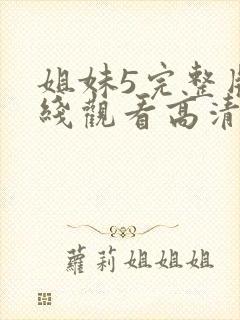 姐妹5完整
綫觀看高清
蘿莉姐姐姐